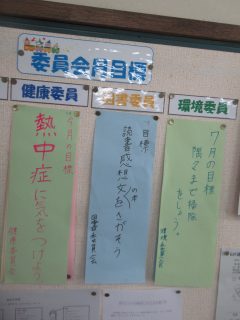 委員会月目標
健康委員
図書委員
環境委員
7月の目標
熱中症に気をつけよう
健康委員会
目標
読書感想文の本をさがそう
図書委員会
7月の目標
隅々まで掃除
をしよう。
環境委員会